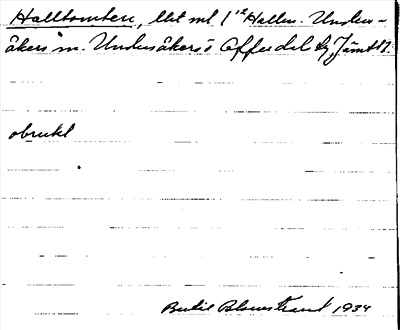 Halltomten, lht ml 1 st Hallen. Unders-
åkers m. Undersåkers o Offerdal tg, Jämtl.
obrukl
Bertil Blomstrand 1934